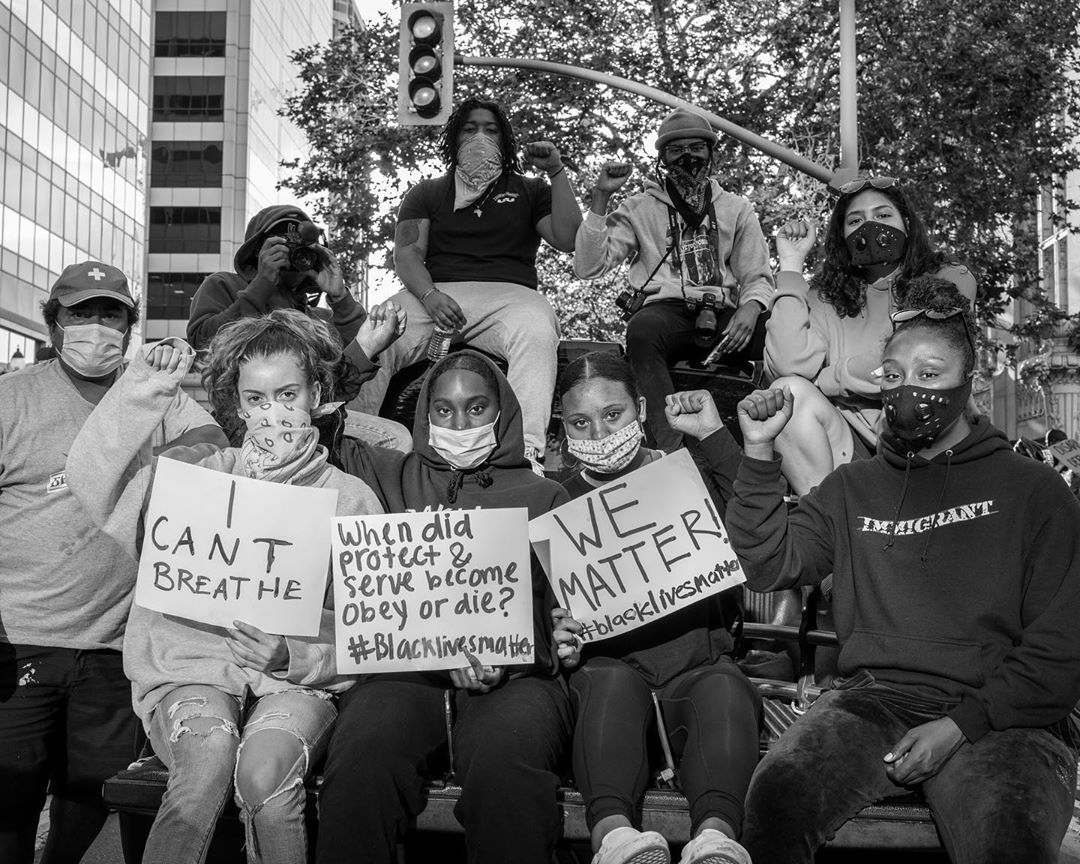 I
CAN'T
BREATHE
When did
protect &
serve become
obey or die?
#Blacklivesmatter
WE
MATTER!
#blacklivesmatter
IMMIGRANT